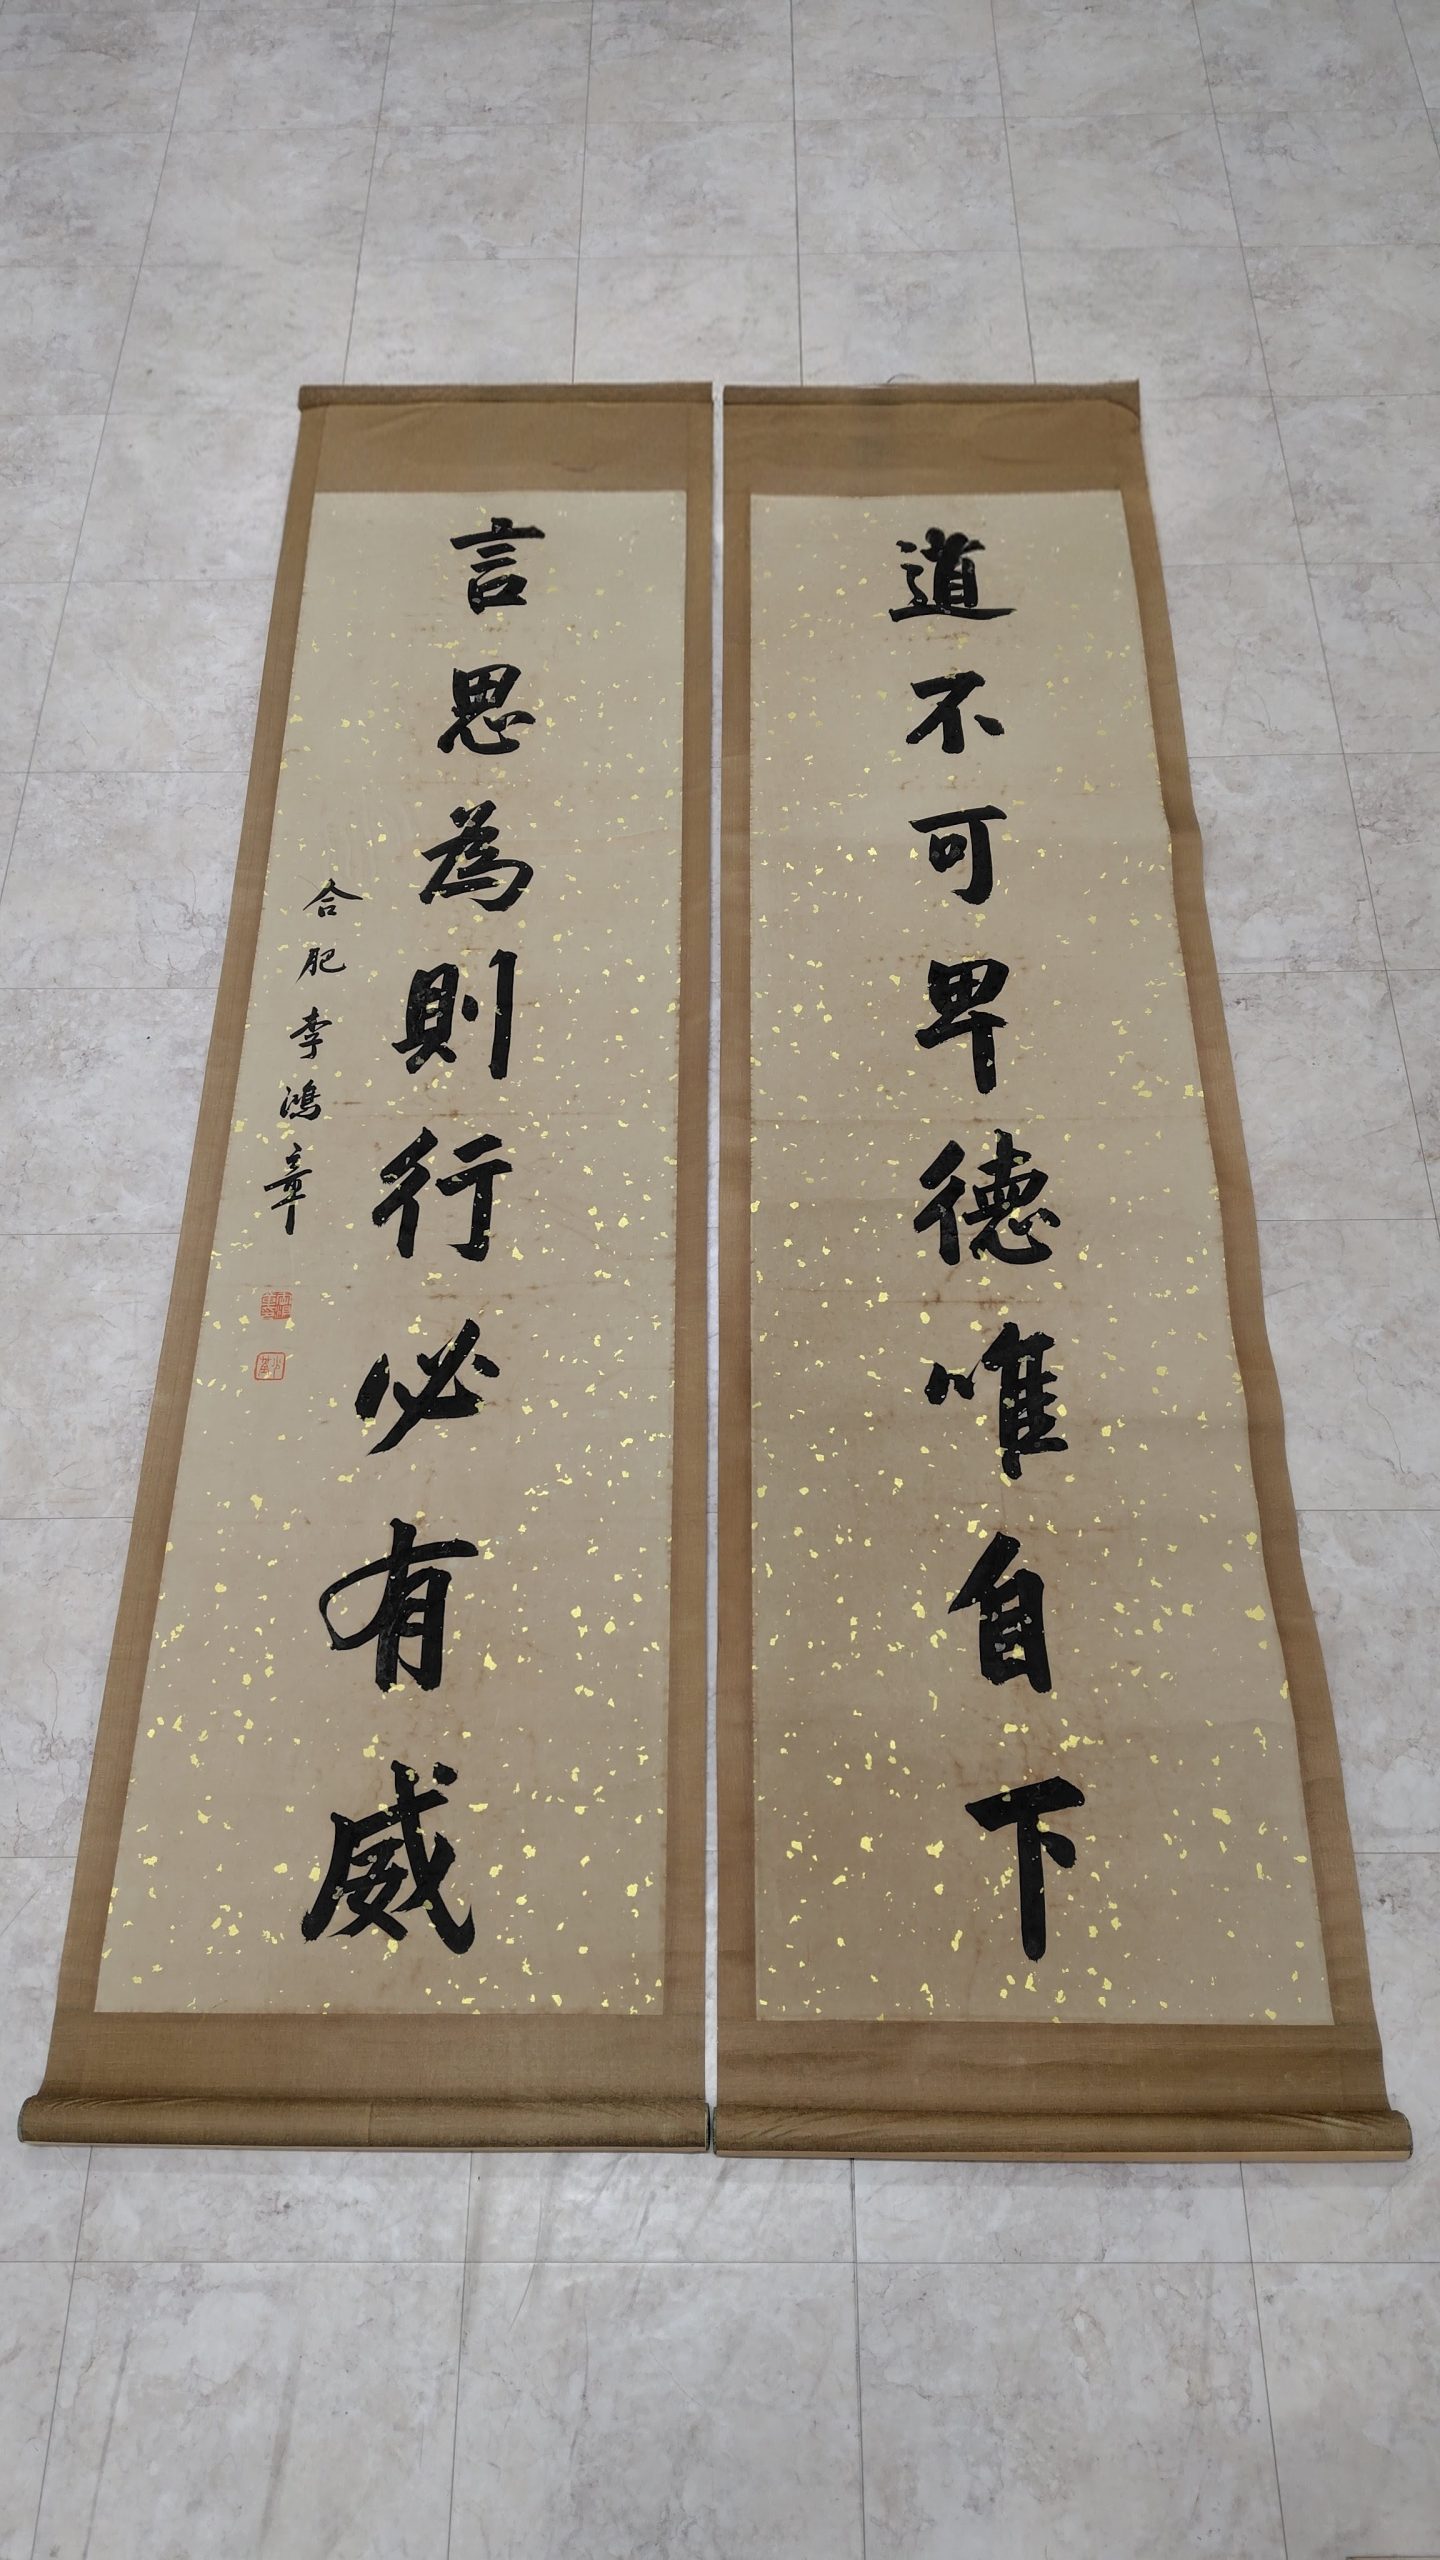 道不可卑德唯自下
言思為則行必有威
合肥李鴻章